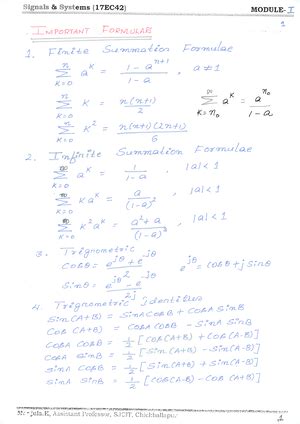 Signals & Systems (17EC42) MODULE-I
1
IMPORTANT FORMULAES
1. Finite Summation Formulae
∑_{K=0}^{n} a^K = (1 - a^{n+1})/(1 - a) , a ≠ 1
∑_{K=0}^{n} K = n(n+1)/2
∑_{K=n_0}^{∞} a^K = a^{n_0}/(1-a)
∑_{K=0}^{n} K^2 = n(n+1)(2n+1)/6
2. Infinite Summation Formulae
∑_{K=0}^{∞} a^K = 1/(1-a) , |a|<1
∑_{K=0}^{∞} K a^K = a/(1-a)^2 , |a|<1
∑_{K=0}^{∞} K^2 a^K = (a^2+a)/(1-a)^3 , |a|<1
3. Trignometric
Cosθ = (e^{jθ} + e^{-jθ})/2
e^{jθ} = cosθ + j Sinθ
Sinθ = (e^{jθ} - e^{-jθ})/2j
4. Trignometric Identities
Sin(A+B) = SinA CosB + CosA SinB
Cos(A+B) = CosA CosB - SinA SinB
CosA CosB = 1/2 [Cos(A+B) + Cos(A-B)]
CosA SinB = 1/2 [Sin(A+B) - Sin(A-B)]
SinA CosB = 1/2 [Sin(A+B) + Sin(A-B)]
SinA SinB = 1/2 [Cos(A-B) - Cos(A+B)]
K, Assistant Professor, SJCIT, Chickballapur
1